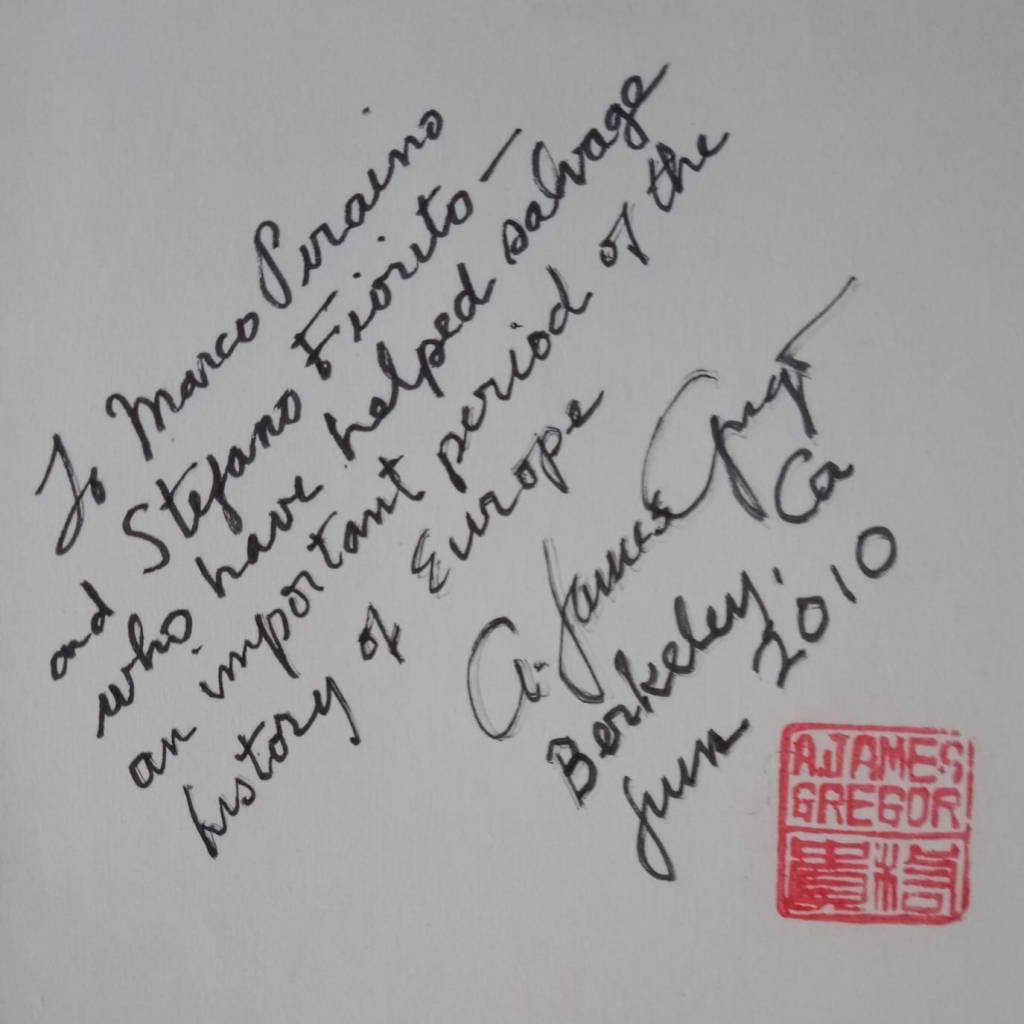 To Marco Piraino
and Stefano Fiorito —
who have helped salvage
an important period of the
history of Europe
A. James Gregor
Berkeley, Ca
June 2010
A.JAMES
GREGOR